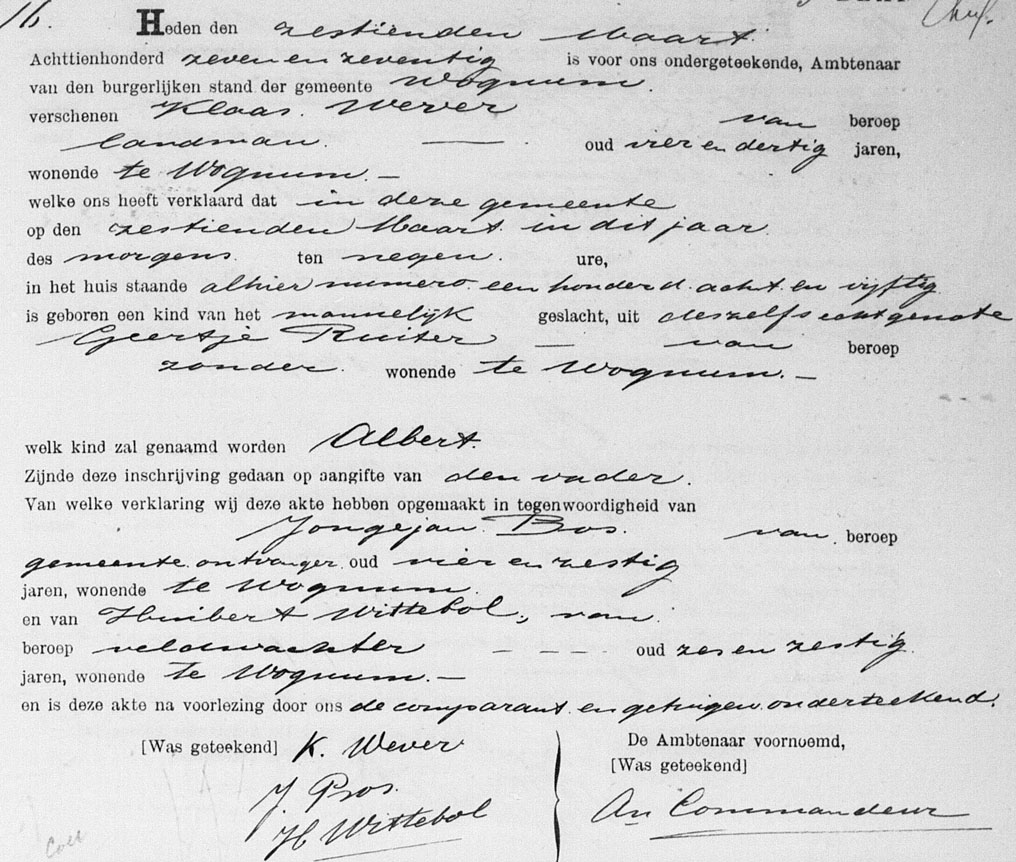 16.
Heden den zestienden Maart
Achttienhonderd zeven en zeventig is voor ons ondergeteekende, Ambtenaar
van den burgerlijken stand der gemeente Wognum.
verschenen Klaas Wever van beroep
landman. — oud vier en dertig jaren,
wonende te Wognum. —
welke ons heeft verklaard dat in deze gemeente
op den zestienden Maart in dit jaar
des morgens ten negen ure,
in het huis staande alhier numero een honderd acht en vijftig
is geboren een kind van het mannelijk geslacht, uit deszelfs echtgenote
Geertje Ruiter — van beroep
zonder wonende te Wognum. —
welk kind zal genaamd worden Albert.
Zijnde deze inschrijving gedaan op aangifte van den vader.
Van welke verklaring wij deze akte hebben opgemaakt in tegenwoordigheid van
Jongejan Bos. van beroep
gemeente ontvanger oud vier en zestig
jaren, wonende te Wognum.
en van Huibert Wittebol, van
beroep veldwachter - - - - oud zes en zestig
jaren, wonende te Wognum. —
en is deze akte na voorlezing door ons de comparant en getuigen onderteekend.
[Was geteekend] K. Wever De Ambtenaar voornoemd,
[Was geteekend]
J Bos.
H Wittebol Commandeur